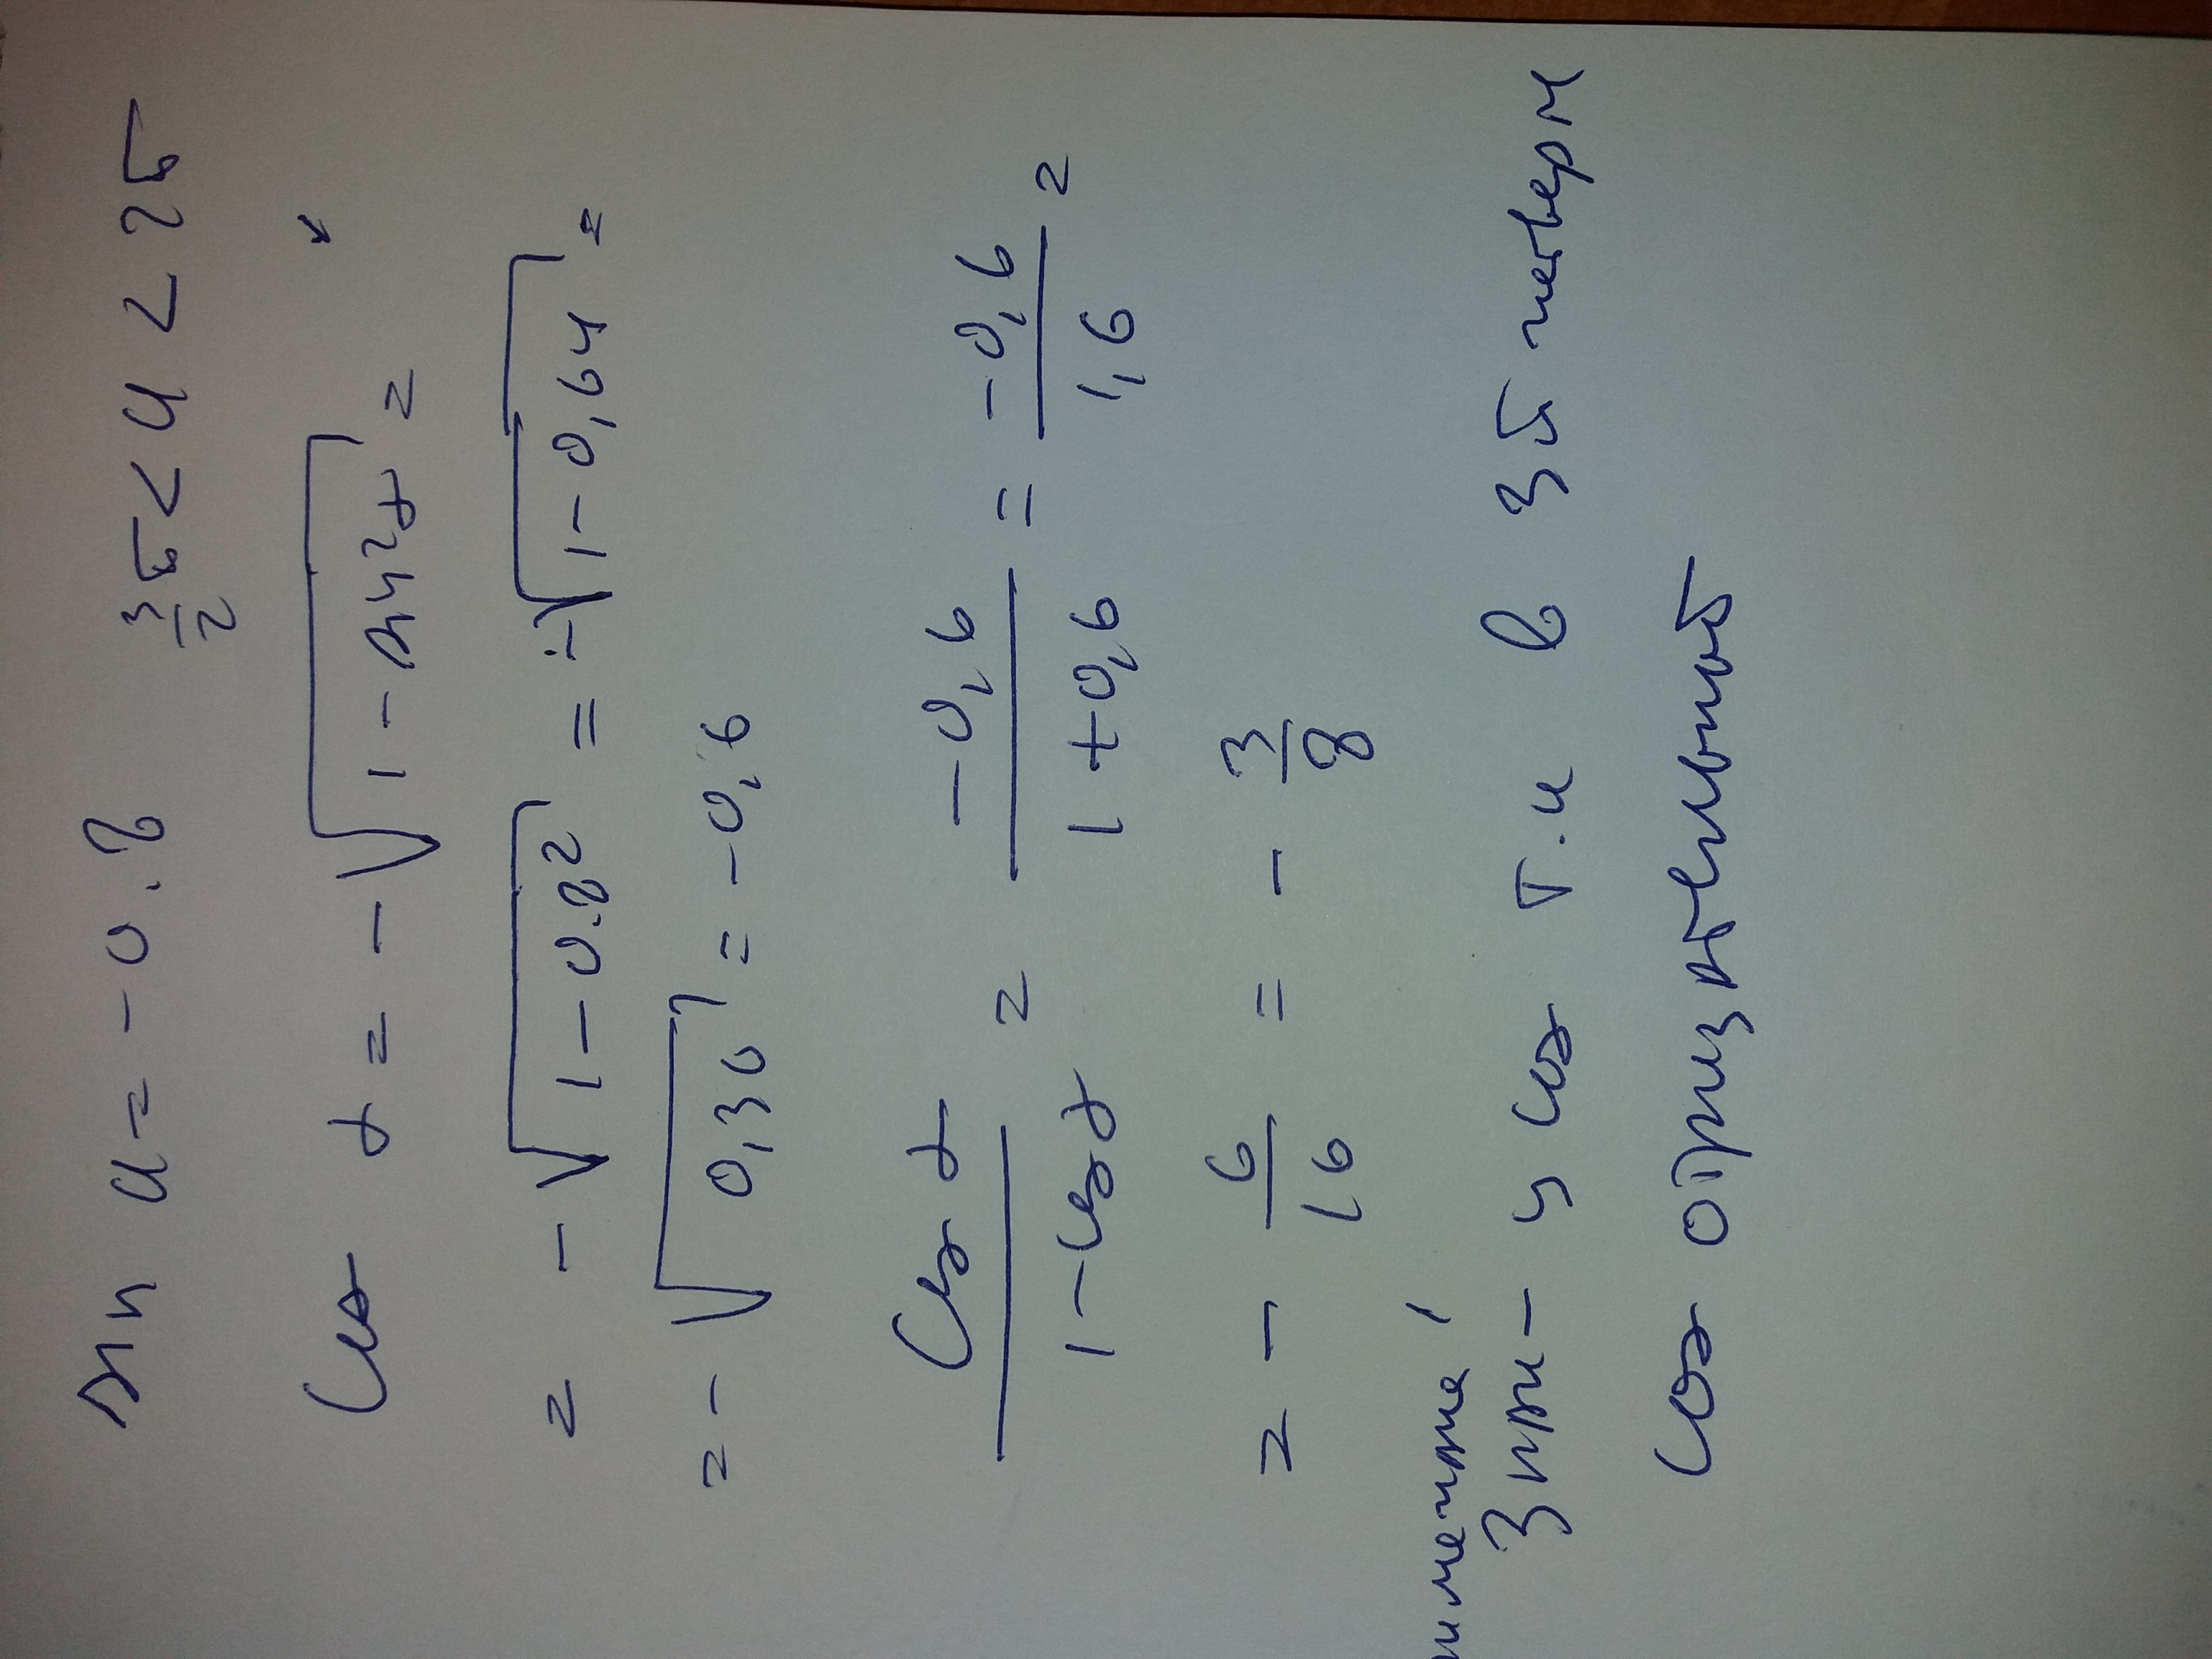 sin α = -0.8 3π/2 < α < 2π
cos α = -√(1-sin²α) =
= -√(1-0.8²) = -√(1-0,64 =
= -√0,36 = -0,6
cos α / 1-cos α = -0,6 / 1+0,6 = -0,6 / 1,6 =
= - 6/16 = - 3/8
Знак - у cos т.к в 3й четверти
cos отрицательный